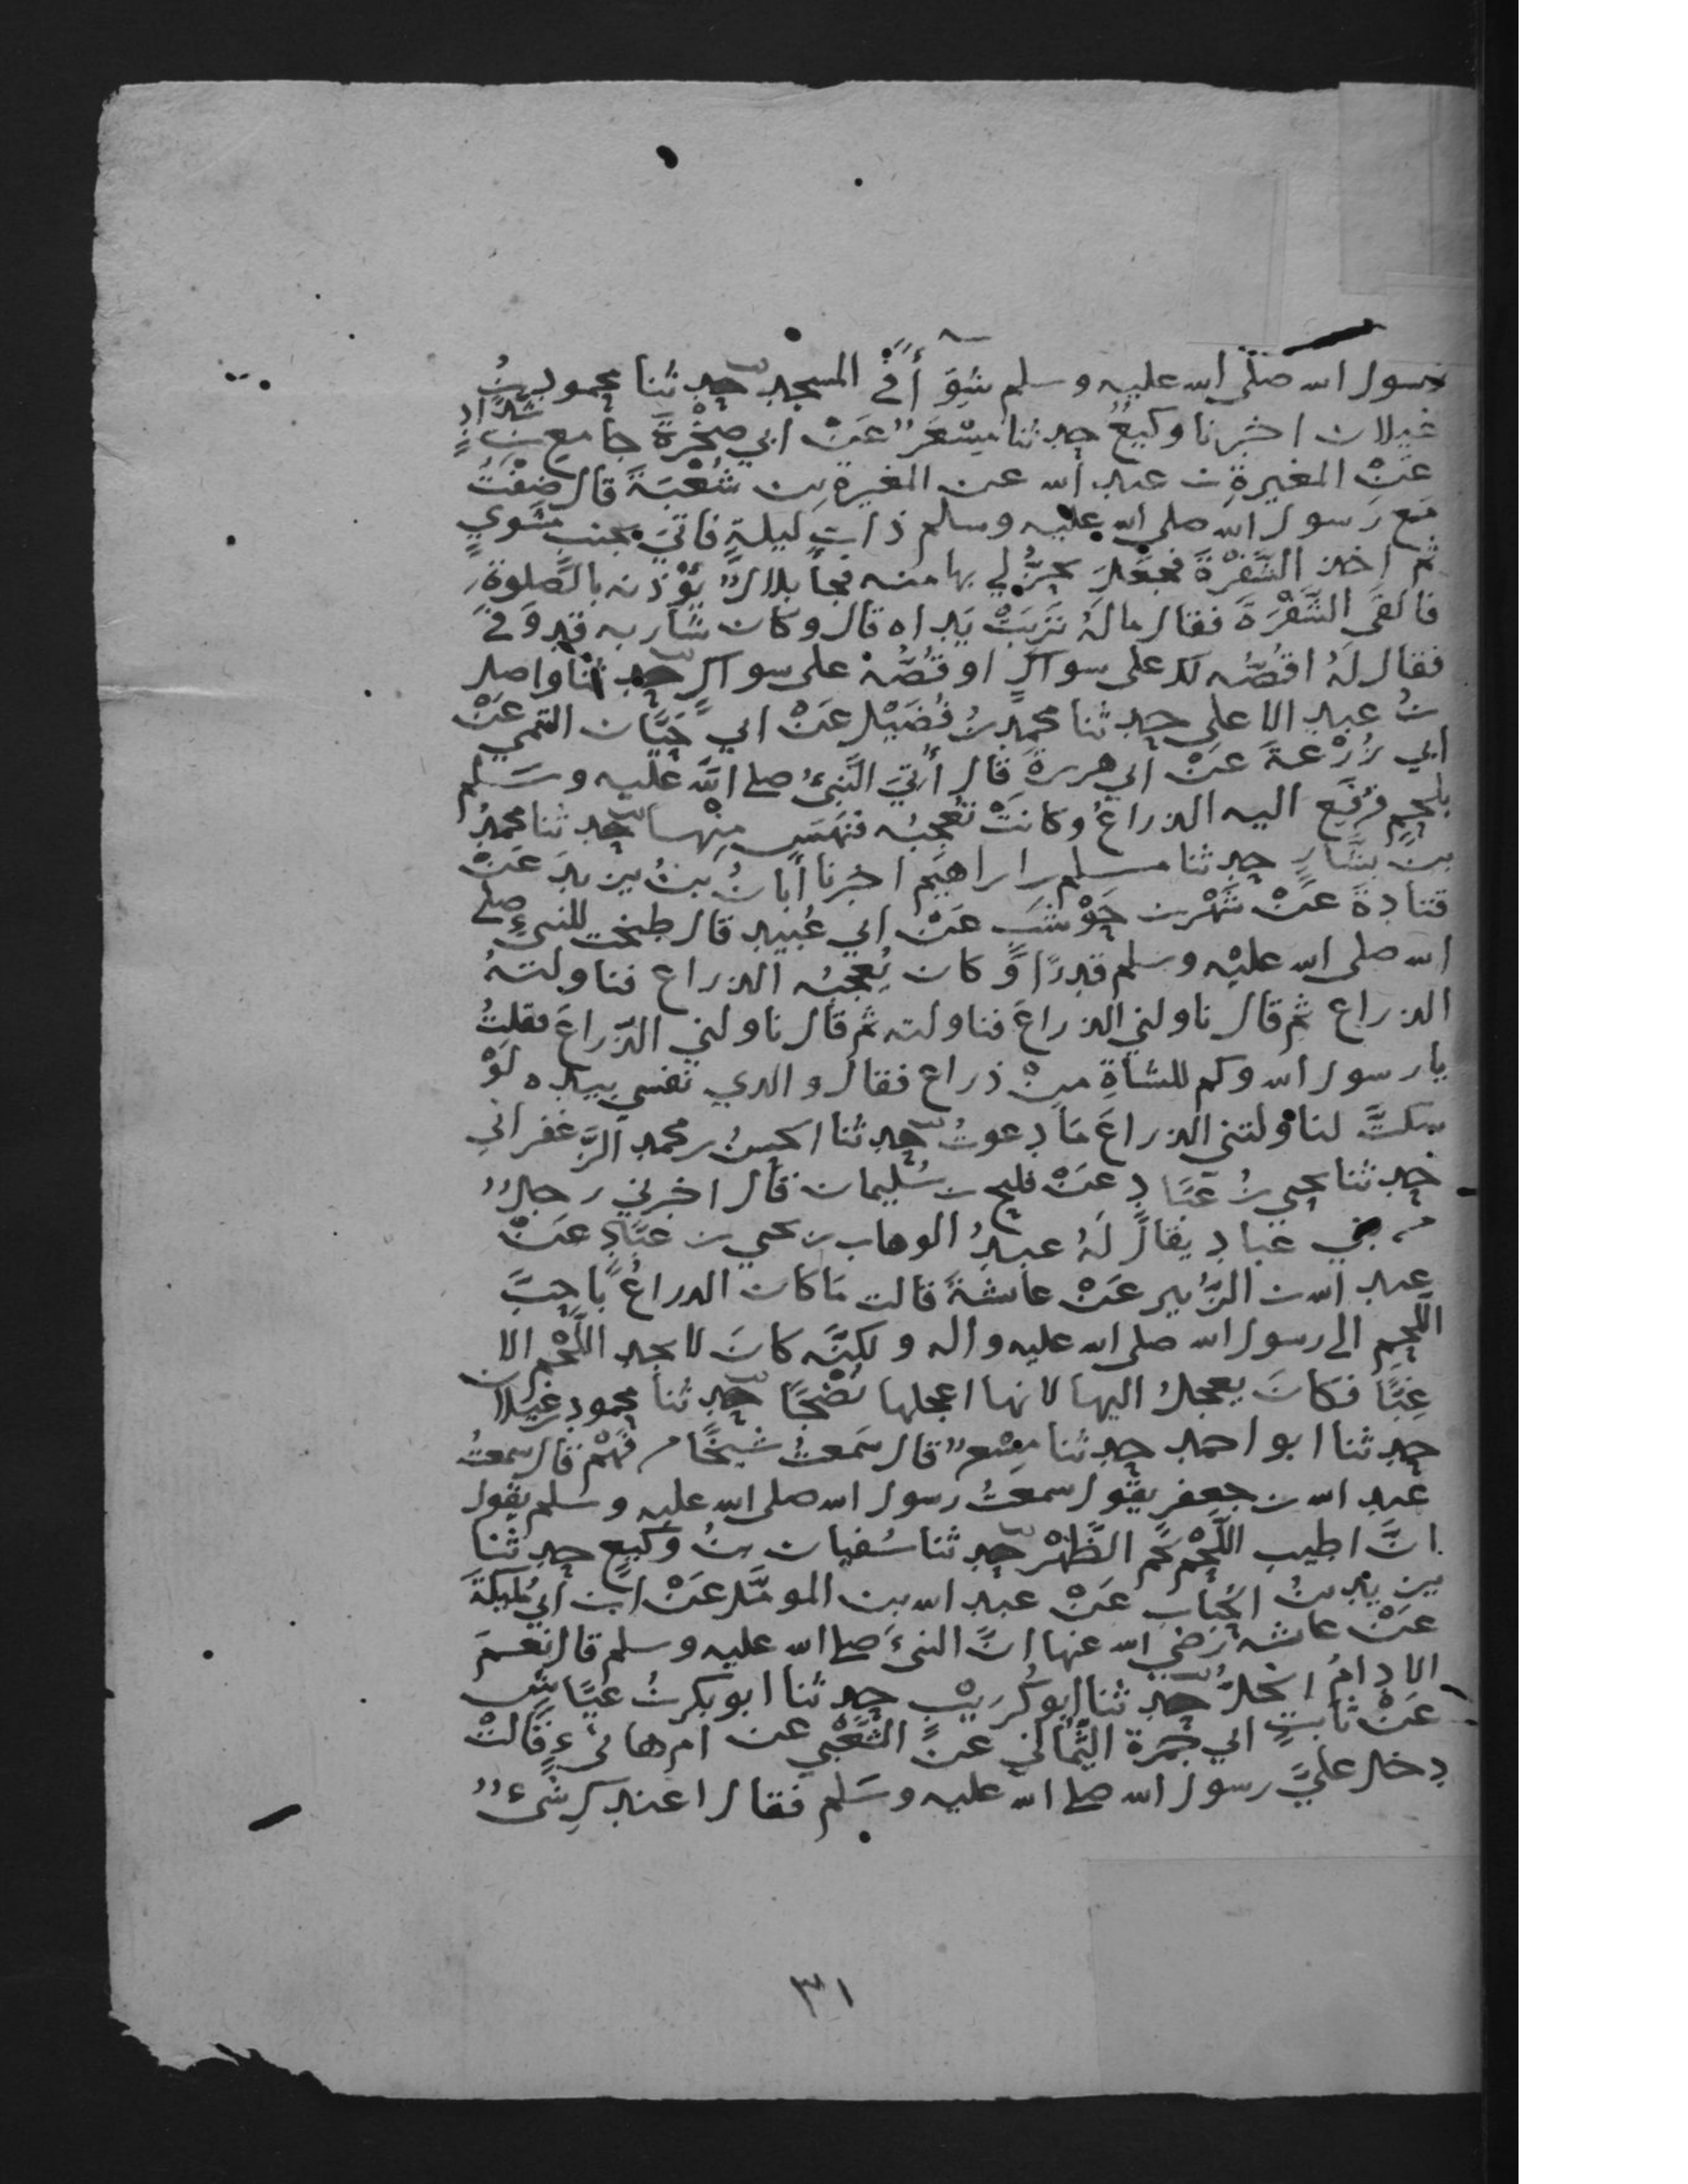 رسول الله صلى الله عليه وسلم شِوَآءً في المسجد حدثنا محمود بنُ
غيلان اخبرنا وكيعٌ حدثنا مِسْعَرٌ عَنْ ابي صخْرَةَ جامع بن شدّادٍ
عَنْ المغيرةِ بن عبد الله عن المغيرة بن شُعْبَةَ قال ضِفْتُ
مَع رَسول الله صلى الله عليه وسلم ذات ليلةٍ فاتيَ بجنبٍ مَشويٍ
ثم اخذ الشَّفْرَةَ فجعَلَ يحزُّ لي بها منه فجآ بلالٌ يُؤْذنه بالصَّلوةِ
فالقى الشَّفْرَةَ فقال مالَهُ تَرِبَتْ يَداه قال وكان شَاربه قد وَفَى
فقال لَهُ اقصُّه لك على سواكٍ او قُصَّهُ على سواك حدثنا واصل
بنُ عبدِ الاعلى حدثنا محمد بنُ فُضَيْل عَنْ ابي حَيَّان التيمي عَنْ
ابي زُرْعَةَ عَنْ ابي هريرة قال أُتيَ النَّبيُّ صلى الله عليه وسَلم
بلحمٍ فرُفِع اليه الذراعُ وكانَتْ تُعجبُه فنهَسَ مِنْها حدثنا محمدُ
بنُ بشَّارٍ حدثنا مسلم بن ابراهيم اخبرنا أبانُ بنُ يزيدَ عَنْ
قتادةَ عَنْ شَهْرِ بن حَوْشَب عَنْ ابي عُبيد قال طبخت للنبيِّ صلى
الله صلى الله عليْه وسلم قدرًا وَّكان يُعجبُه الذراع فناولتهُ
الذراع ثم قال ناولني الذراعَ فناولته ثم قال ناولني الذّراعَ فقلتُ
يا رسول الله وكم للشاةِ مِنْ ذراع فقال والذي نفسي بيده لَوْ
سكتَّ لناولتني الذراعَ مَا دعوتُ حدثنا الحسنُ بن محمد الزَّعفرانيِ
حدثنا يحيى بنُ عَبَّادٍ عَنْ فليح بن سُليمان قال اخبرني رجلٌ
من بني عبادٍ يقالُ لَهُ عبدُ الوهاب بن يحيى بن عبَّادٍ عَنْ
عبد الله بن الزُّبير عَنْ عائشةَ قالت مَا كان الذراعُ باحبَّ
اللحم الى رسول الله صلى الله عليه واله ولكنَّه كانَ لا يجد اللَّحْم الا
غِبًّا فكانَ يعجلُ اليها لانها اعجلها نُضْجًا حدثنا محمود بن غيلان
حدثنا ابو احمد حدثنا مِسْعرٌ قال سَمعتُ شيخًا من فَهْمٍ قال سمعتُ
عبد الله بن جعفر يقول سمعتُ رسول الله صلى الله عليه وسلم يقول
انَّ اطيب اللَّحْم لَحْم الظَّهْرِ حدثنا سُفيان بنُ وكيعٍ حدثنا
زيد بنُ الحُبَاب عَنْ عبد الله بن المومَّل عَنْ ابن ابي مُليكةَ
عَنْ عائشه رَضي الله عنها انَّ النبيَّ صلى الله عليه وسلم قال نعمَ
الادامُ الخلُّ حدثنا ابو كُرَيْب حدثنا ابو بكر بنُ عيَّاش
عَنْ ثابتٍ ابي حمزة الثُّمالي عنِ الشَّعْبي عن ام هانيءٍ قالَتْ
دخل عليَّ رسول الله صلى الله عليه وسَلم فقال اعندكِ شيءٌ
٣١